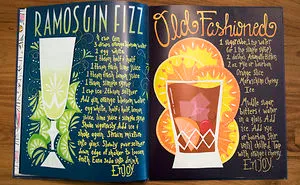 RAMOS GIN FIZZ
1 cup Gin
3 drops orange flower water
1 egg white
1 Tbsp. half & half
1 Tbsp. fresh lemon juice
1 Tbsp. fresh lime juice
1 Tbsp. simple syrup
1 cup ice · Seltzer
Add gin, orange flower water,
egg white, half & half, lemon
juice, lime juice & simple syrup.
Shake vigorously. Add ice &
shake again. Strain mixture
into glass. Slowly pour seltzer
down edge of shaker to loosen
froth. Ease soda into drink.
ENJOY
Old Fashioned
1 sugar cube, 1 tsp. water
2 dashes Angostura Bitters
2 oz. Rye or Bourbon
Orange Slice
Maraschino Cherry
Ice
Muddle sugar,
bitters &
water in
a glass. Add
ice. Add rye
or bourbon. Stir
until chilled. Top
with orange & cherry.
ENJOY!